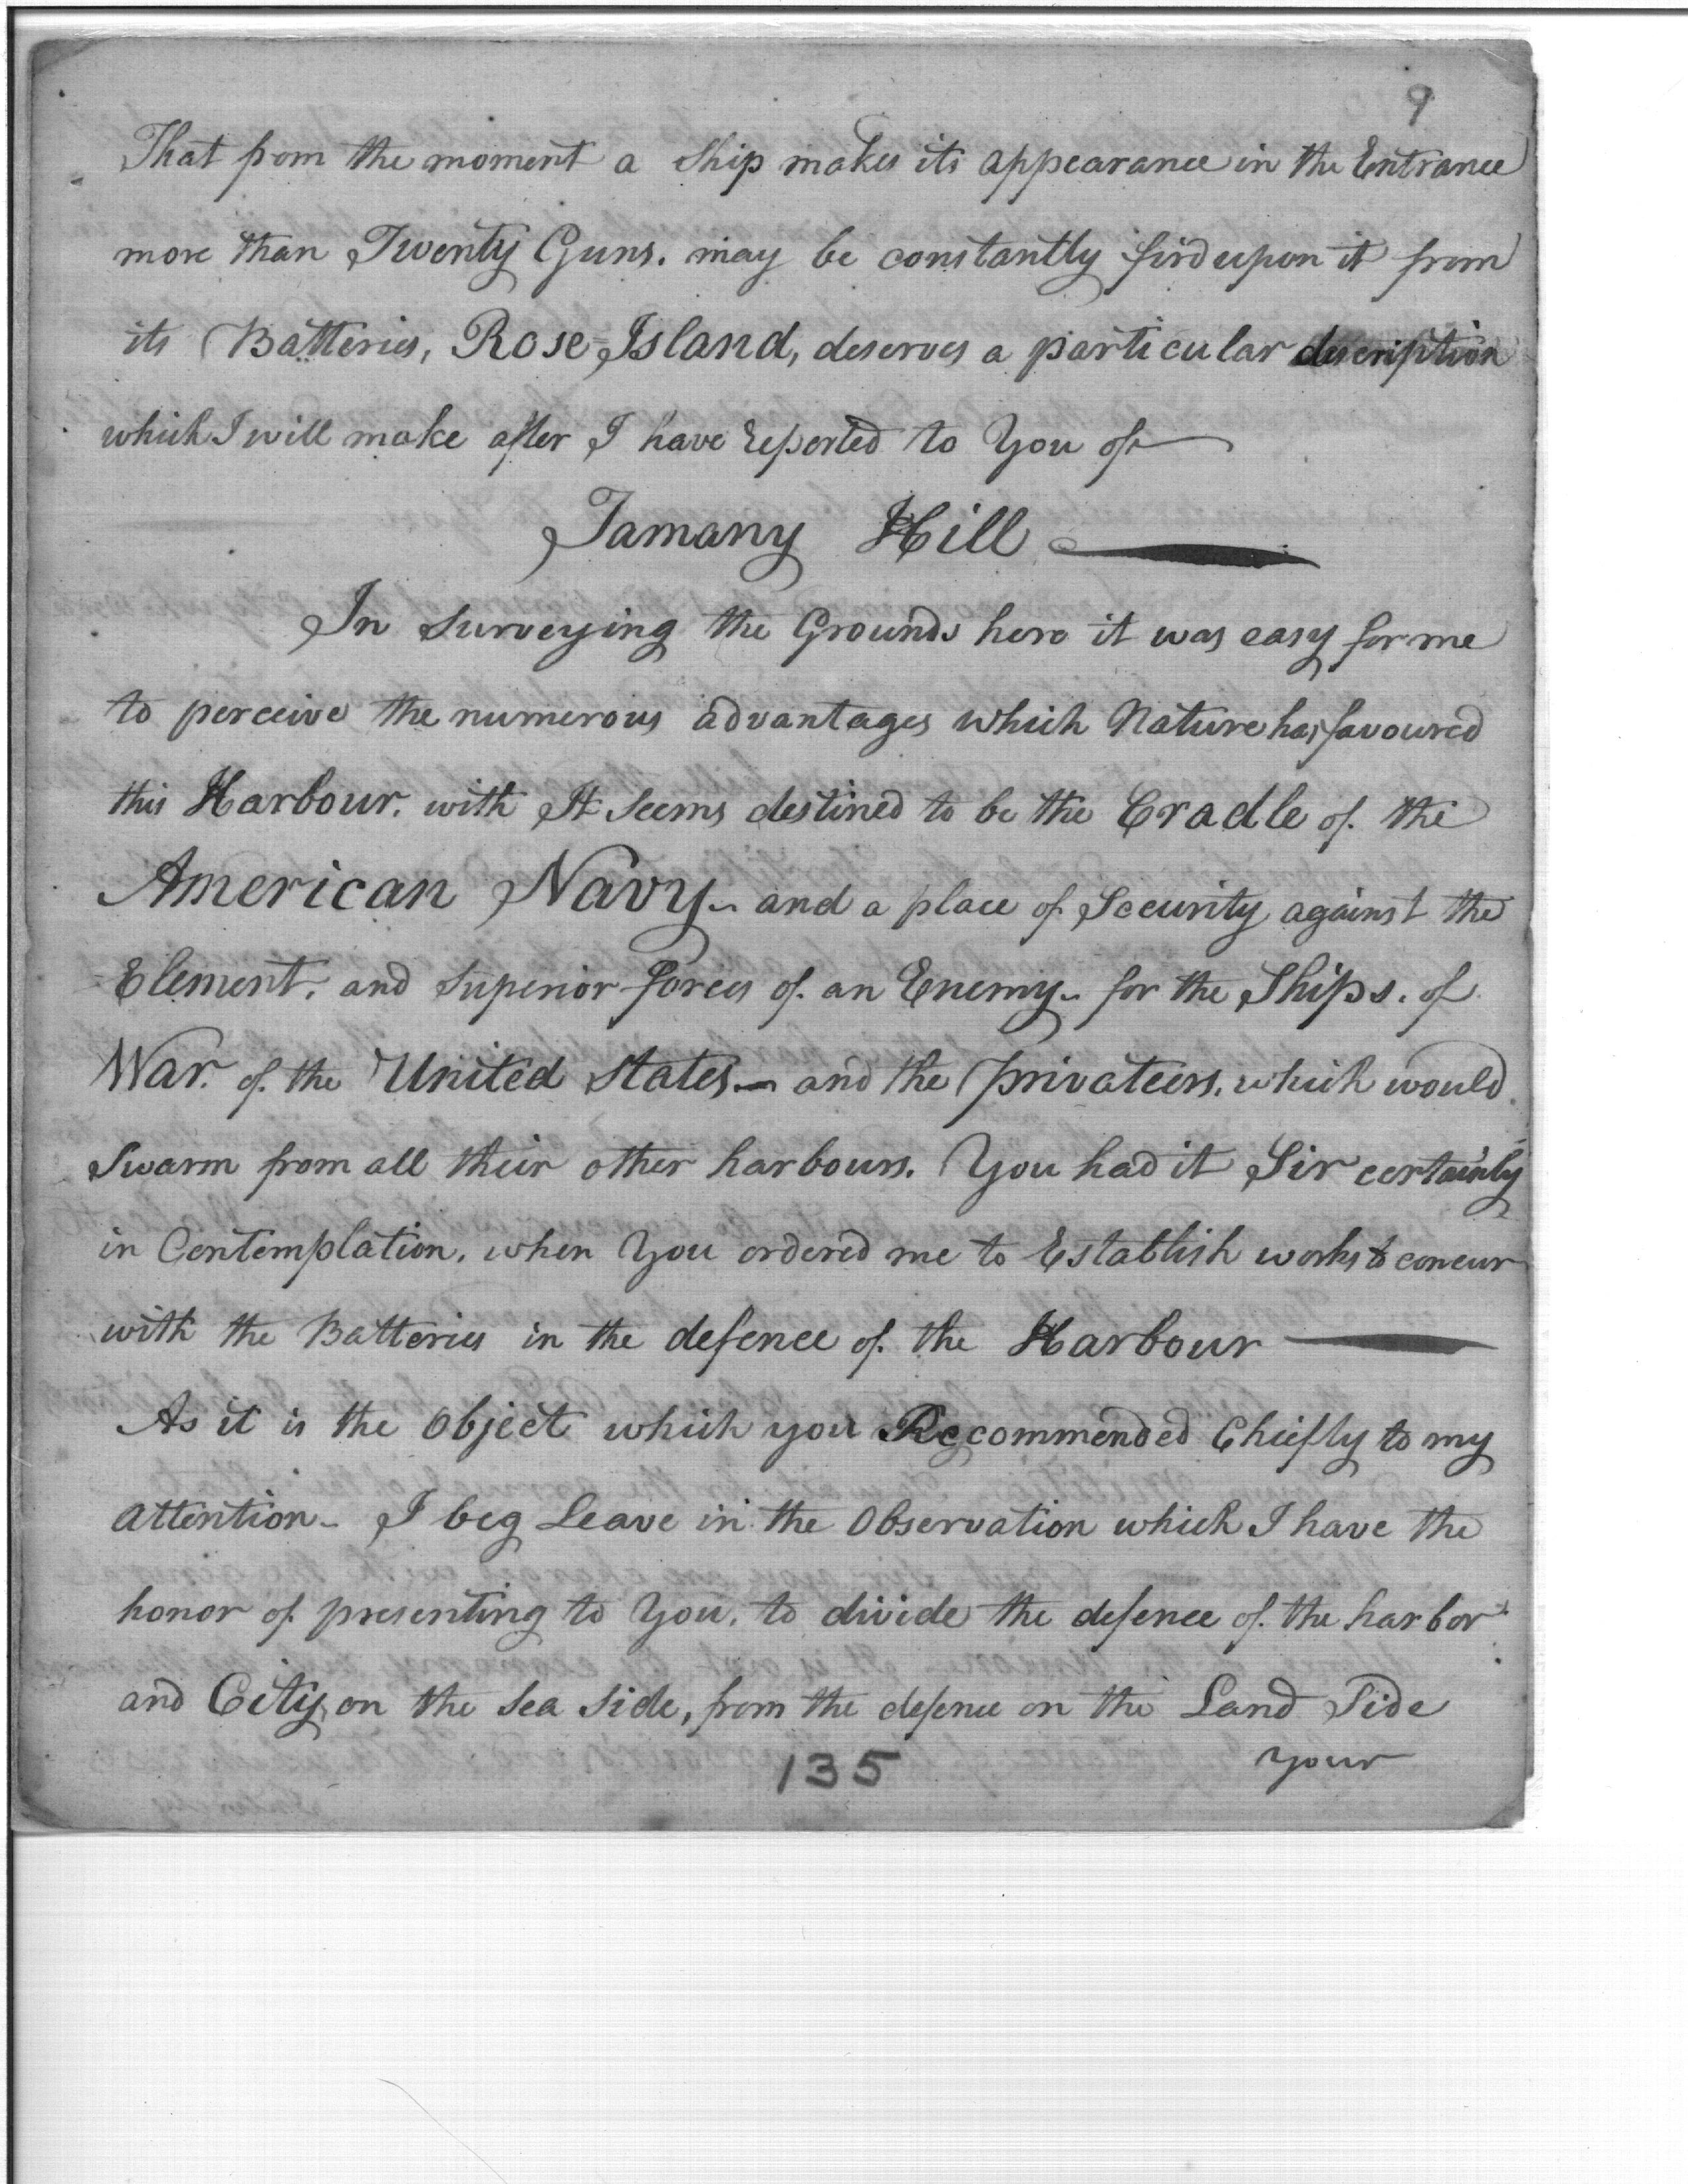 9
That from the moment a Ship makes its appearance in the Entrance
more than Twenty Guns. may be constantly fird upon it from
its Batteries, Rose-Island, deserves a particular description
which I will make after I have reported to You of
Tamany Hill
In Surveying the Grounds here it was easy for me
to perceive the numerous advantages which Nature has favoured
this Harbour. with It Seems destined to be the Cradle of the
American Navy - and a place of Security against the
Element, and Superior forces of an Enemy - for the Ships. of
War. of the United States - and the privateers, which would
Swarm from all their other harbours. You had it Sir certainly
in Contemplation, when You ordered me to Establish works to concur
with the Batteries in the defence of the Harbour
As it is the Object which you Recommended Chiefly to my
attention - I beg Leave in the Observation which I have the
honor of presenting to You, to divide the defence of the harbor
and City, on the Sea Side, from the defence on the Land Side
your
135